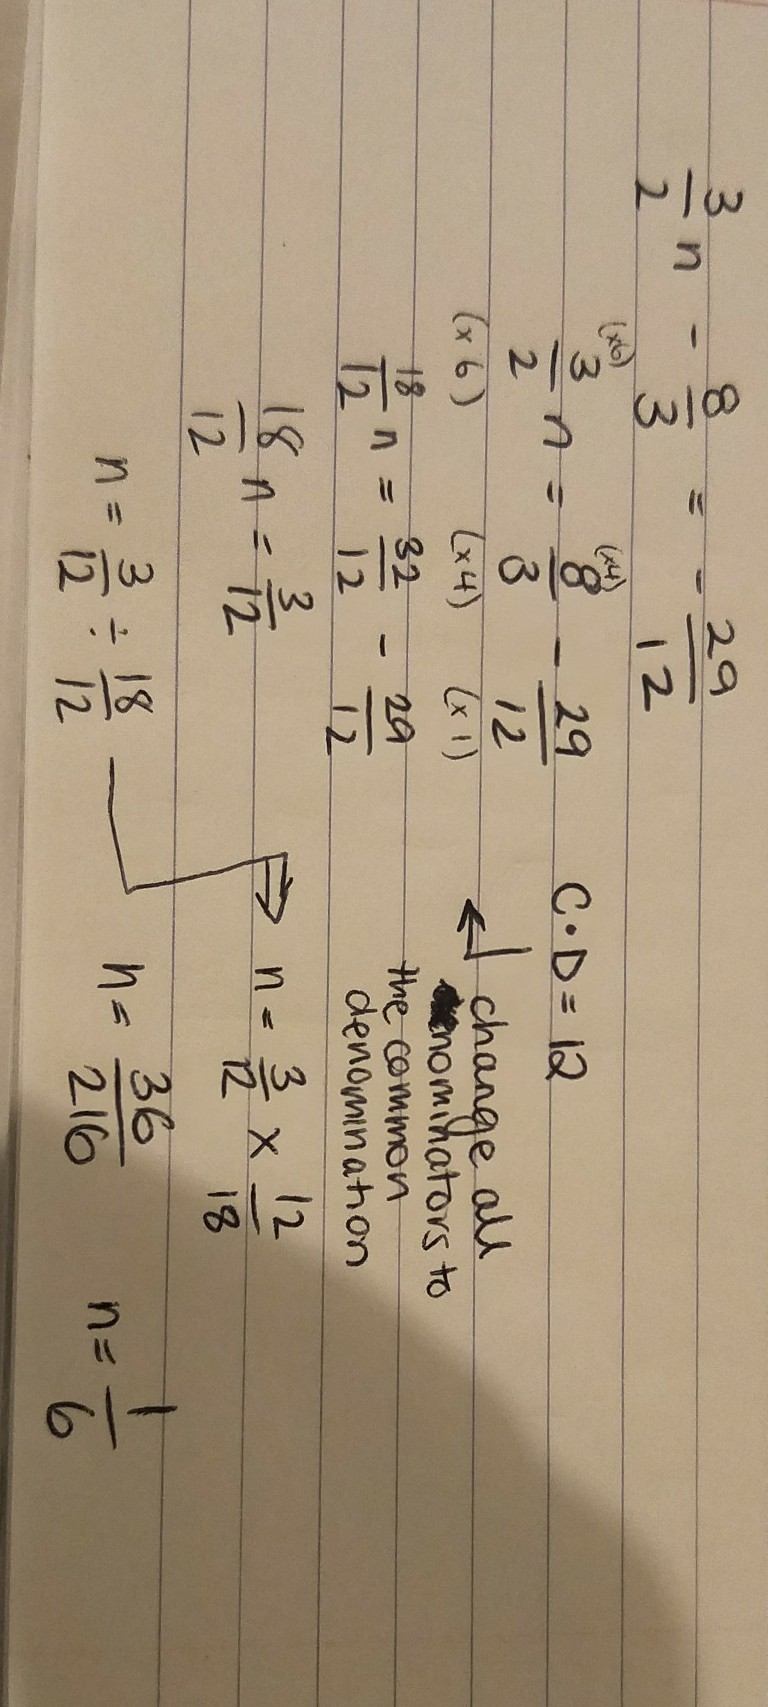 3/2 n - 8/3 = - 29/12
(x6) (x4)
3/2 n = 8/3 - 29/12 C.D = 12
(x6) (x4) (x1)
change all
nominators to
the common
denomination
18/12 n = 32/12 - 29/12
18/12 n = 3/12
n = 3/12 ÷ 18/12
n = 3/12 x 12/18
n = 36/216 n = 1/6